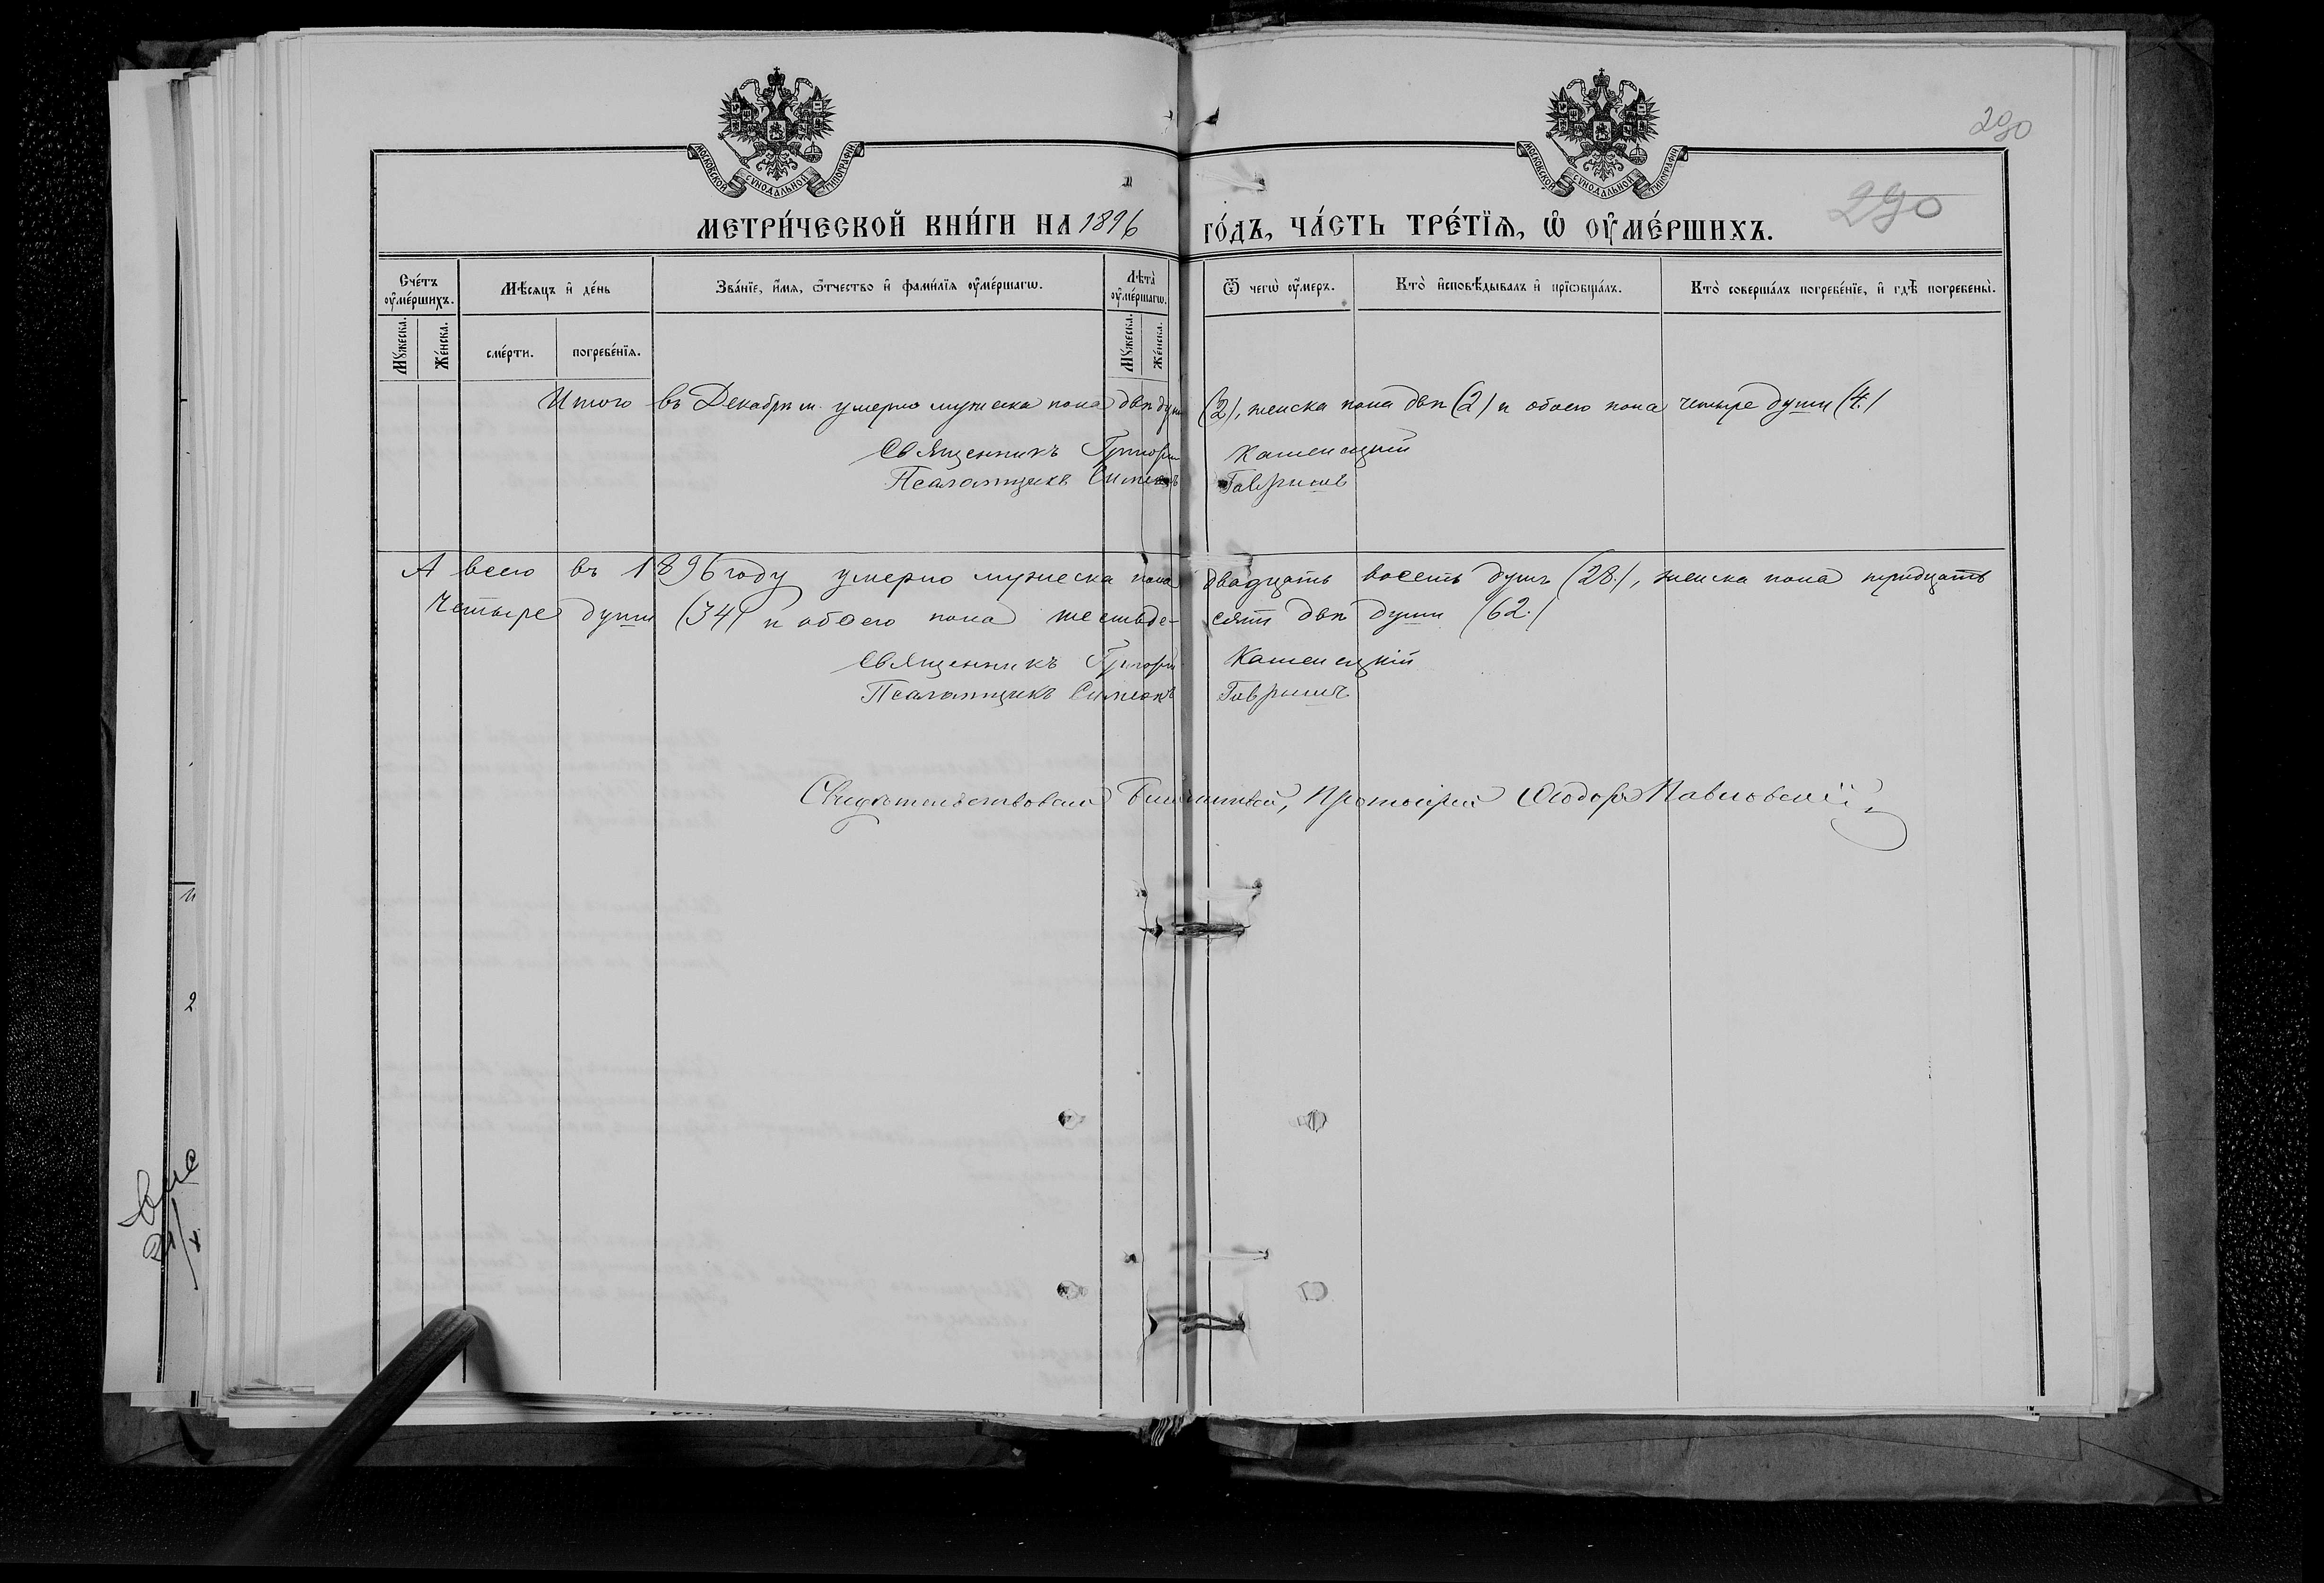 290
290
МОСКОВСКОЙ СѴНОДАЛЬНОЙ ТИПОГРАФІИ
МОСКОВСКОЙ СѴНОДАЛЬНОЙ ТИПОГРАФІИ
МЕТРИ́ЧЕСКОЙ КНИ́ГИ НА 1896 ГО́ДЪ, ЧА́СТЬ ТРЕ́ТЇѦ, Ѡ҆ ОУ҆МЕ́РШИХЪ.
Сче́тъ оу҆ме́ршихъ.
Мꙋ́жеска.
Же́нска.
Мѣ́сѧцъ и҆ де́нь
сме́рти.
погребе́нїѧ.
Зва́нїе, и҆́мѧ, ѻ҆́тчество и҆ фами́лїѧ оу҆ме́ршагѡ.
Лѣта̀ оу҆ме́ршагѡ.
Мꙋ́жеска.
Же́нска.
Ѿ чегѡ̀ оу҆́меръ.
Кто̀ и҆сповѣ́дывалъ и҆ прїѡбща́лъ.
Кто̀ соверша́лъ погребе́нїе, и҆ гдѣ̀ погребены̀.
Итого въ Декабрѣ м. умерло мужеска пола двѣ души (2), женска пола двѣ (2) и обоего пола четыре души (4.)
Священникъ Григорій Каменецкій
Псаломщикъ Симеонъ Гавришъ
А всего въ 1896 году умерло мужеска пола двадцать восемь душъ (28.), женска пола тридцать
четыре души (34) и обоего пола шестьде-сятъ двѣ души (62.)
Священникъ Григорій Каменецкій
Псаломщикъ Симеонъ Гавришъ
Свидѣтельствовалъ Благочинный, Протоіерей Ѳеодоръ Павловскій
2